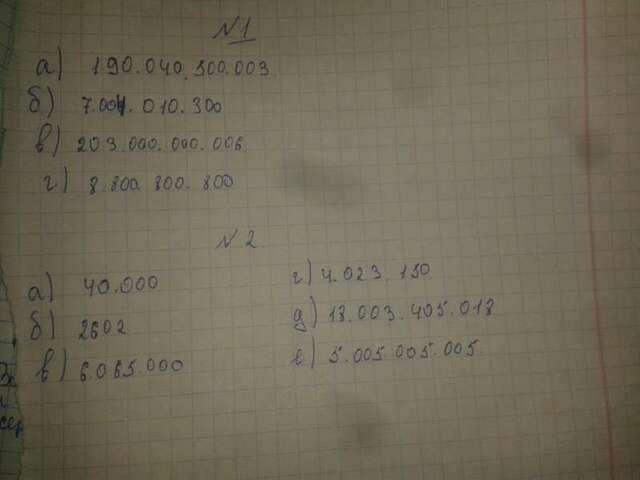 №1
а) 190.040.300.003
б) 7.004.010.300
в) 203.000.000.006
г) 8.800.800.800
№2
а) 40.000
г) 4.023.150
б) 2602
д) 18.003.405.018
в) 6.065.000
е) 5.005.005.005